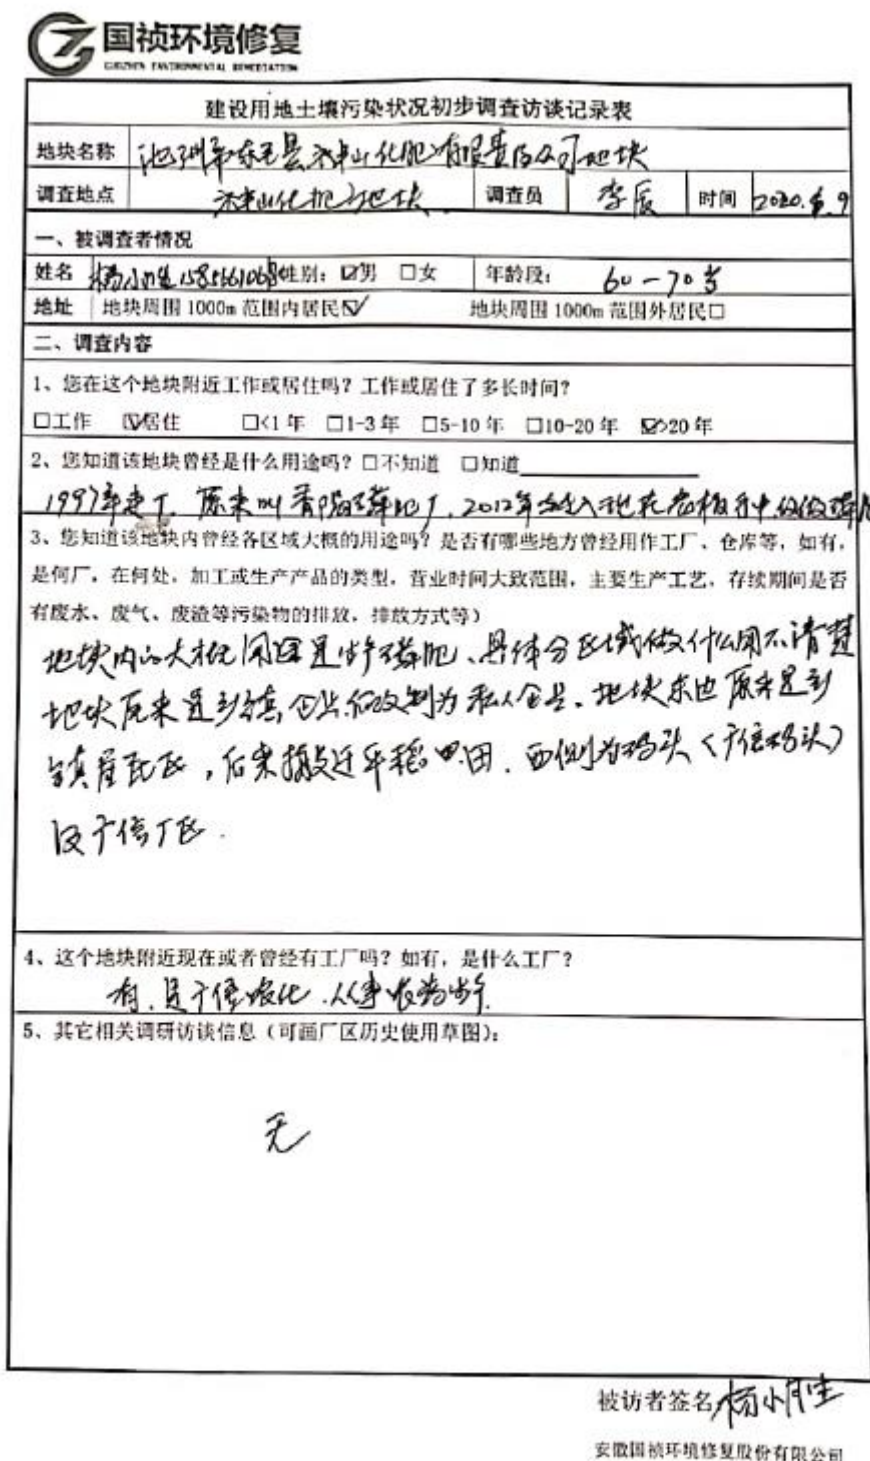 国祯环境修复
GUOZHEN ENVIRONMENTAL REMEDIATION
建设用地土壤污染状况初步调查访谈记录表
地块名称 池州市东至县 化肥有限责任公司地块
调查地点 化肥 地块 调查员 李 时间 2020. 9
一、被调查者情况
姓名 杨小 性别：☑男 □女 年龄段： 60-70岁
地址 地块周围 1000m 范围内居民☑ 地块周围 1000m 范围外居民□
二、调查内容
1、您在这个地块附近工作或居住吗？工作或居住了多长时间？
□工作 ☑居住 □<1 年 □1-3 年 □5-10 年 □10-20 年 ☑>20 年
2、您知道该地块曾经是什么用途吗？□不知道 □知道
1997年建厂 原来叫 磷肥厂，2012年
3、您知道该地块内曾经各区域大概的用途吗？是否有哪些地方曾经用作工厂、仓库等，如有，
是何厂，在何处，加工或生产产品的类型，营业时间大致范围，主要生产工艺，存续期间是否
有废水、废气、废渣等污染物的排放，排放方式等）
地块内的大概用途是生产磷肥、具体分区域做什么用不清楚
地块原来是乡镇企业后改制为私人企业、地块东边原来是乡
镇居民区，后来搬迁 稻田．西侧为码头（广信码头）
及广信厂区．
4、这个地块附近现在或者曾经有工厂吗？如有，是什么工厂？
有．是广信农化．从事农药生产
5、其它相关调研访谈信息（可画厂区历史使用草图）：
无
被访者签名 杨小
安徽国祯环境修复股份有限公司